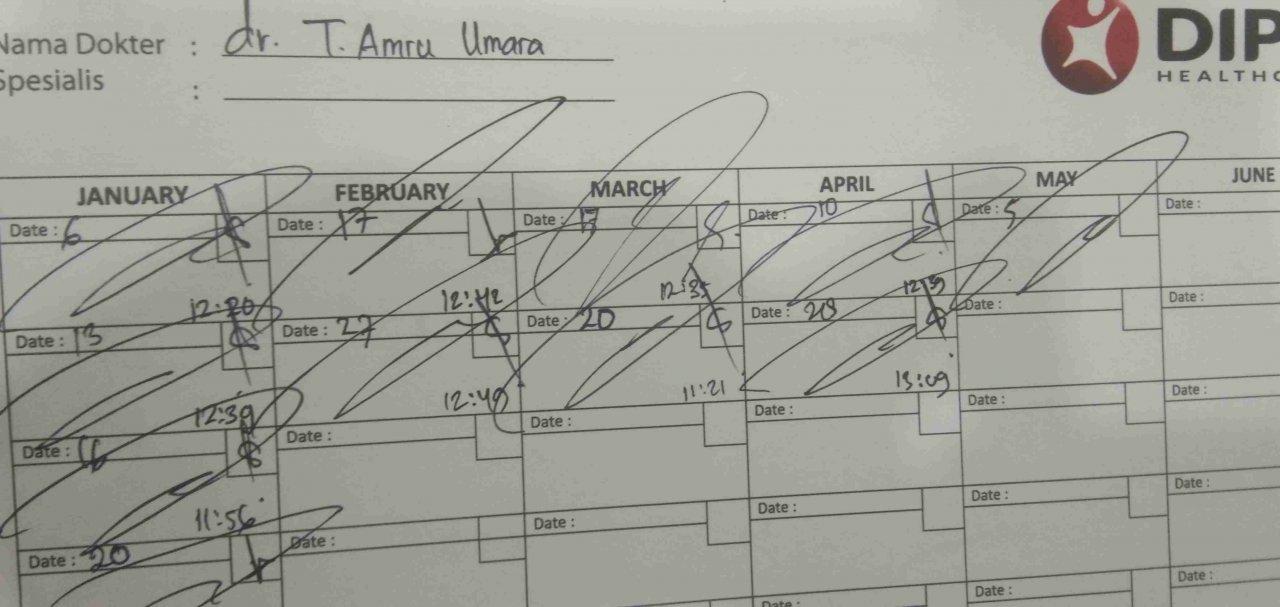 Nama Dokter : dr. T. Amru Umara
Spesialis :
DIP
HEALTHC
JANUARY FEBRUARY MARCH APRIL MAY JUNE
Date : 6 Date : 17 Date : Date : 10 Date : 5 Date :
12:20 12:42 12:35
Date : 13 Date : 27 Date : 20 Date : 28 Date : Date :
12:39 12:49 11:21 13:09
Date : 16 Date : Date : Date : Date : Date :
11:56
Date : 20 Date : Date : Date : Date : Date :
Date : Date : Date :